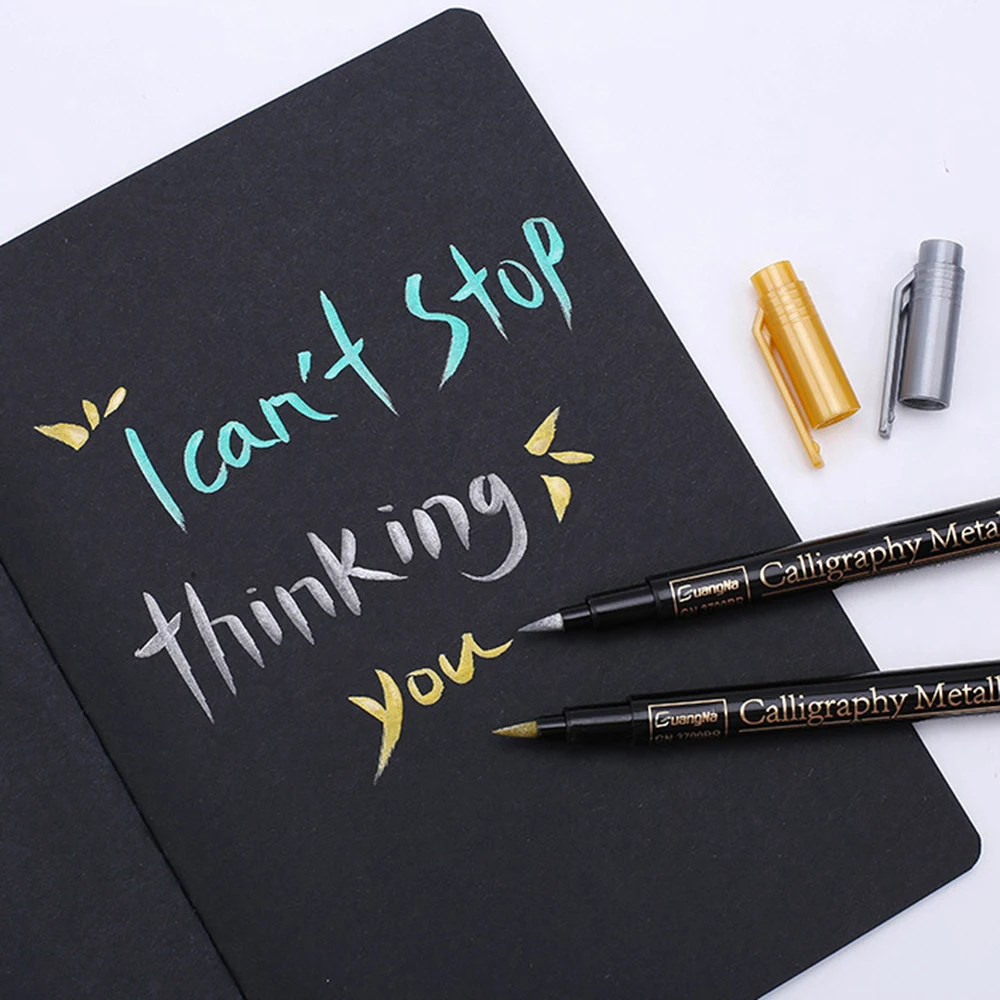 I can't stop
thinking
you
GuangNa
Calligraphy Metal
GuangNa
Calligraphy Metall